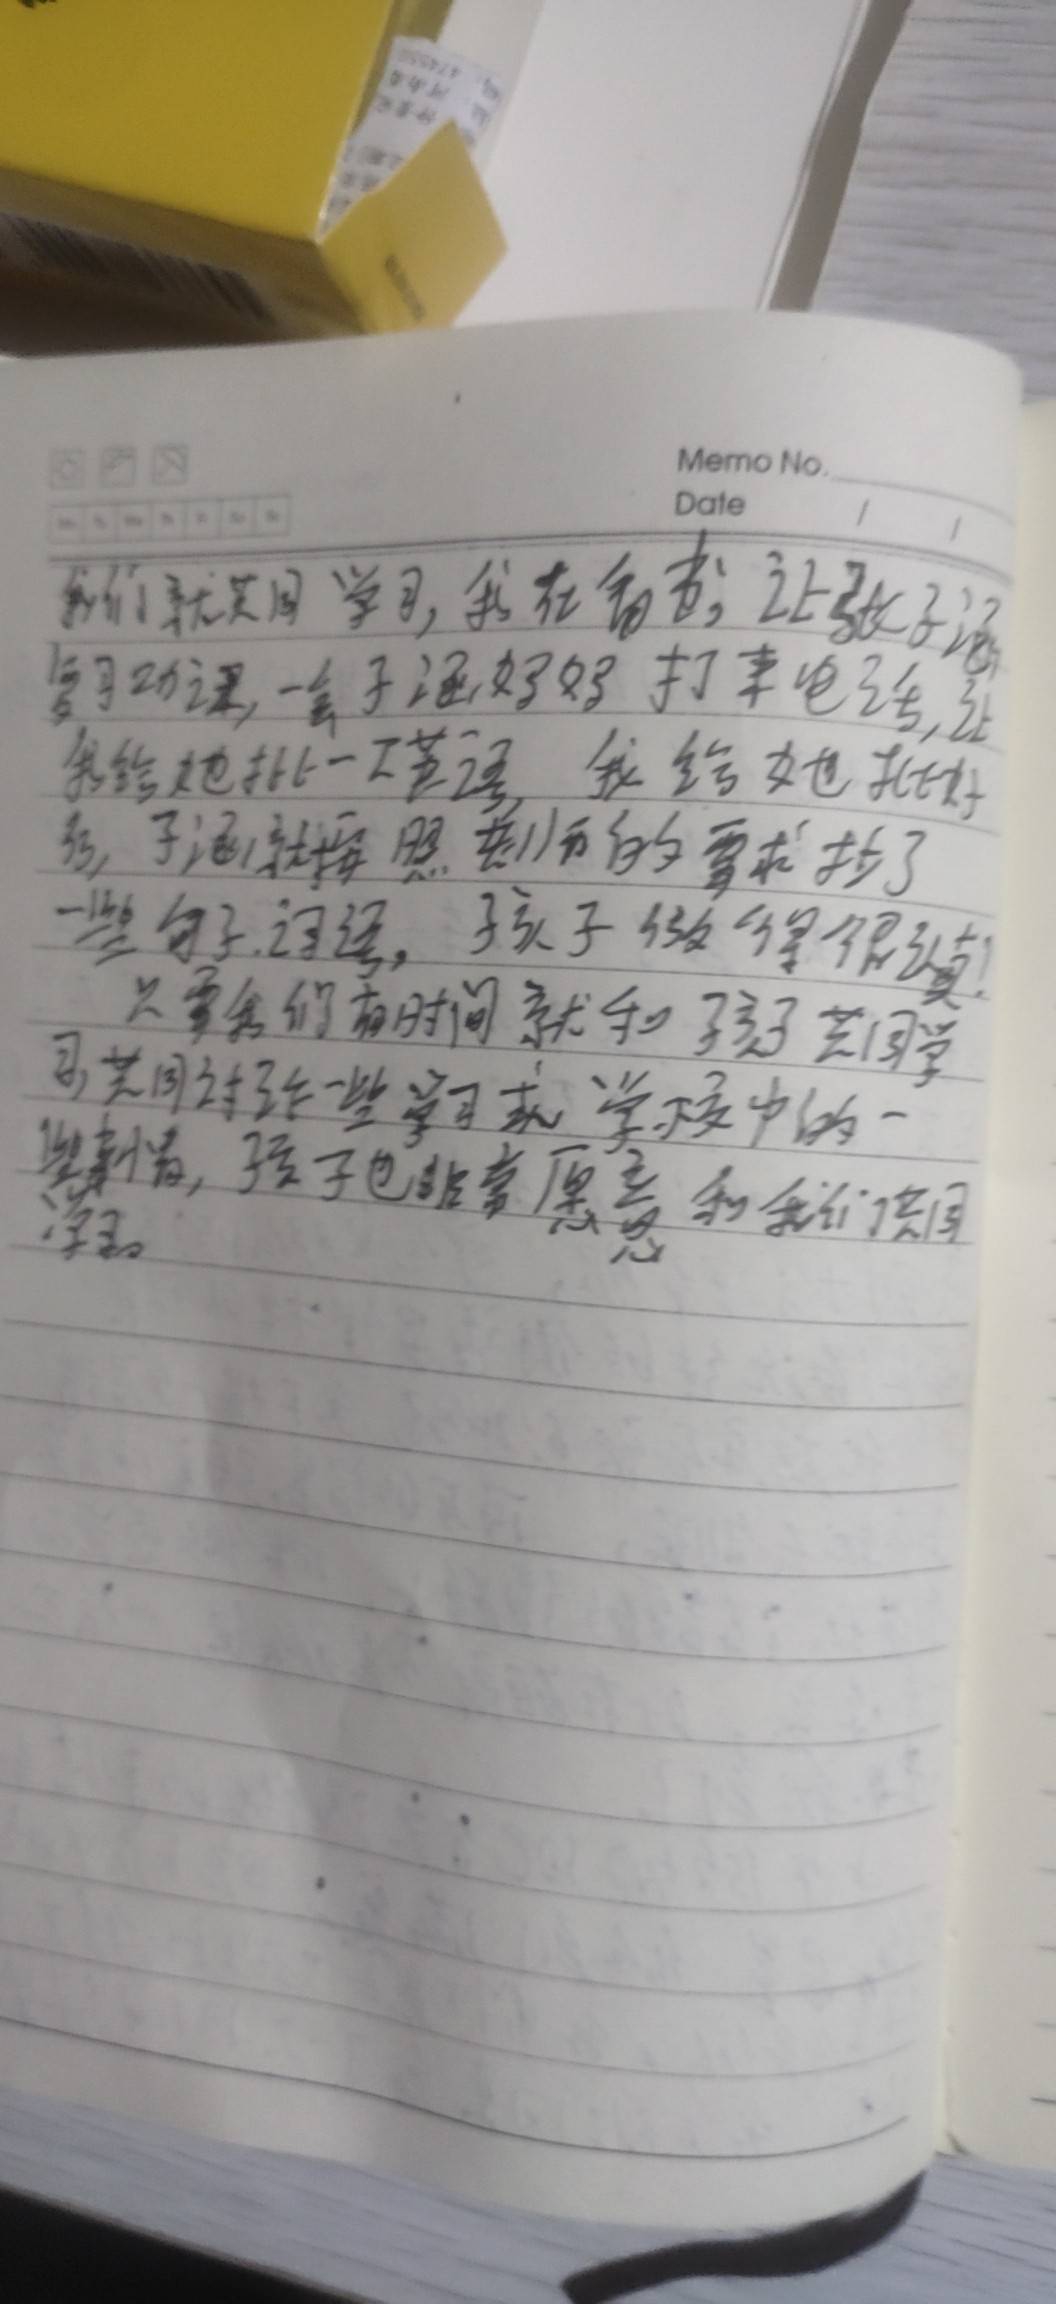 Memo No.
Date / /
我们就共同学习,我在看书,让张子涵
复习功课,一会子涵好好打来电话,让
我给她批一下英语,我给她批好
了,子涵就按照老师的要求抄了
一些句子.词语。孩子做得很认真!
只要我们有时间就和孩子共同学
习,共同讨论一些学习或学校中的一
些事情,孩子也非常愿意和我们共同
学习。